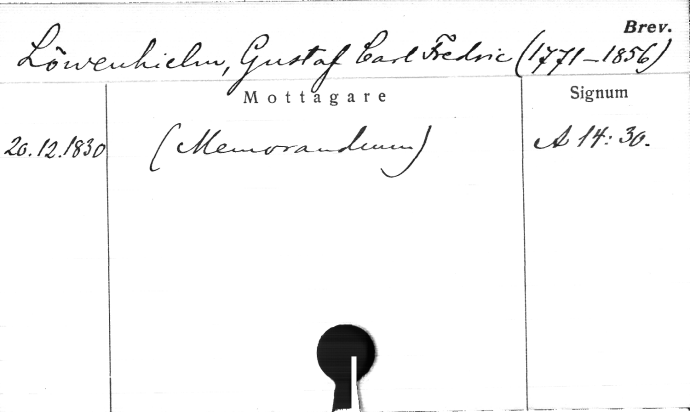 Brev.
Löwenhielm, Gustaf Carl Fredric (1771–1856)
Mottagare Signum
20.12.1830 (Memorandum) A 14:30.